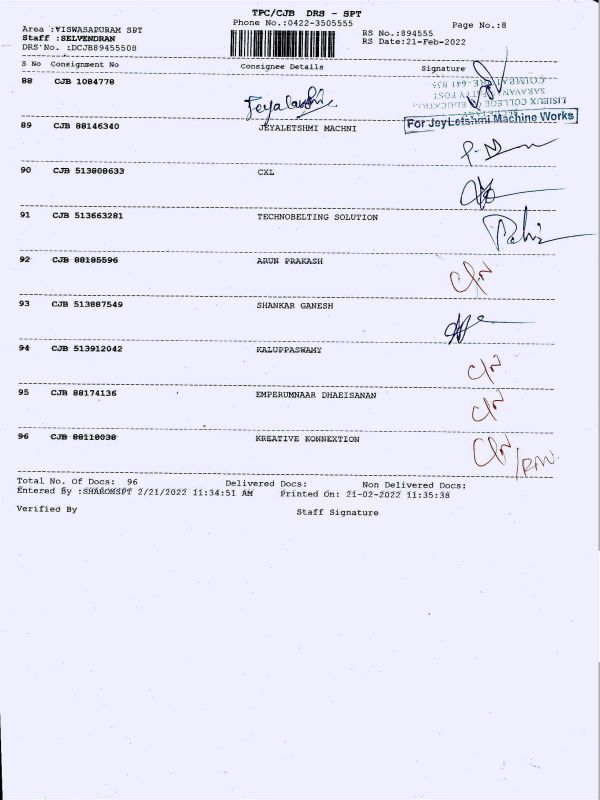 TPC/CJB DRS - SPT
Phone No.:0422-3505555
Page No.:8
Area :VISWASAPURAM SPT
Staff :SELVENDRAN
DRS'No. :DCJB89455508
RS No.:894555
RS Date:21-Feb-2022
S No Consignment No Consignee Details Signature
88 CJB 1084778
COIMBATORE-641 035
SARAVANAMPATTY POST
LISIEUX COLLEGE OF EDUCATION
For JeyLetshmi Machine Works
89 CJB 88146340 JEYALETSHMI MACHNI
90 CJB 513808633 CXL
91 CJB 513663281 TECHNOBELTING SOLUTION
92 CJB 88185596 ARUN PRAKASH
93 CJB 513887549 SHANKAR GANESH
94 CJB 513912042 KALUPPASWAMY
95 CJB 88174136 EMPERUMNAAR DHAEISANAN
96 CJB 88118038 KREATIVE KONNEXTION
Total No. Of Docs: 96 Delivered Docs: Non Delivered Docs:
Entered By :SHARONSPT 2/21/2022 11:34:51 AM Printed On: 21-02-2022 11:35:38
Verified By Staff Signature